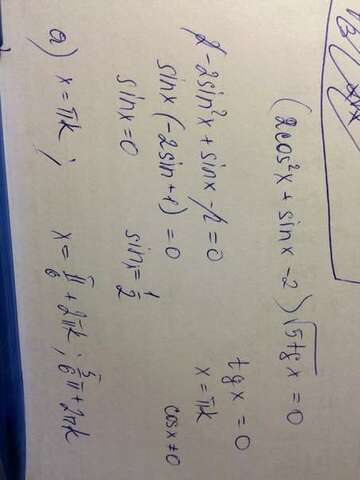 (2cos²x + sinx - 2) √5tgx = 0
2 - 2sin²x + sinx - 2 = 0
tgx = 0
sinx (-2sin + 1) = 0
x = πk
sinx = 0
sinx = 1/2
cosx ≠ 0
a) x = πk ; x = π/6 + 2πk ; 5/6 π + 2πk